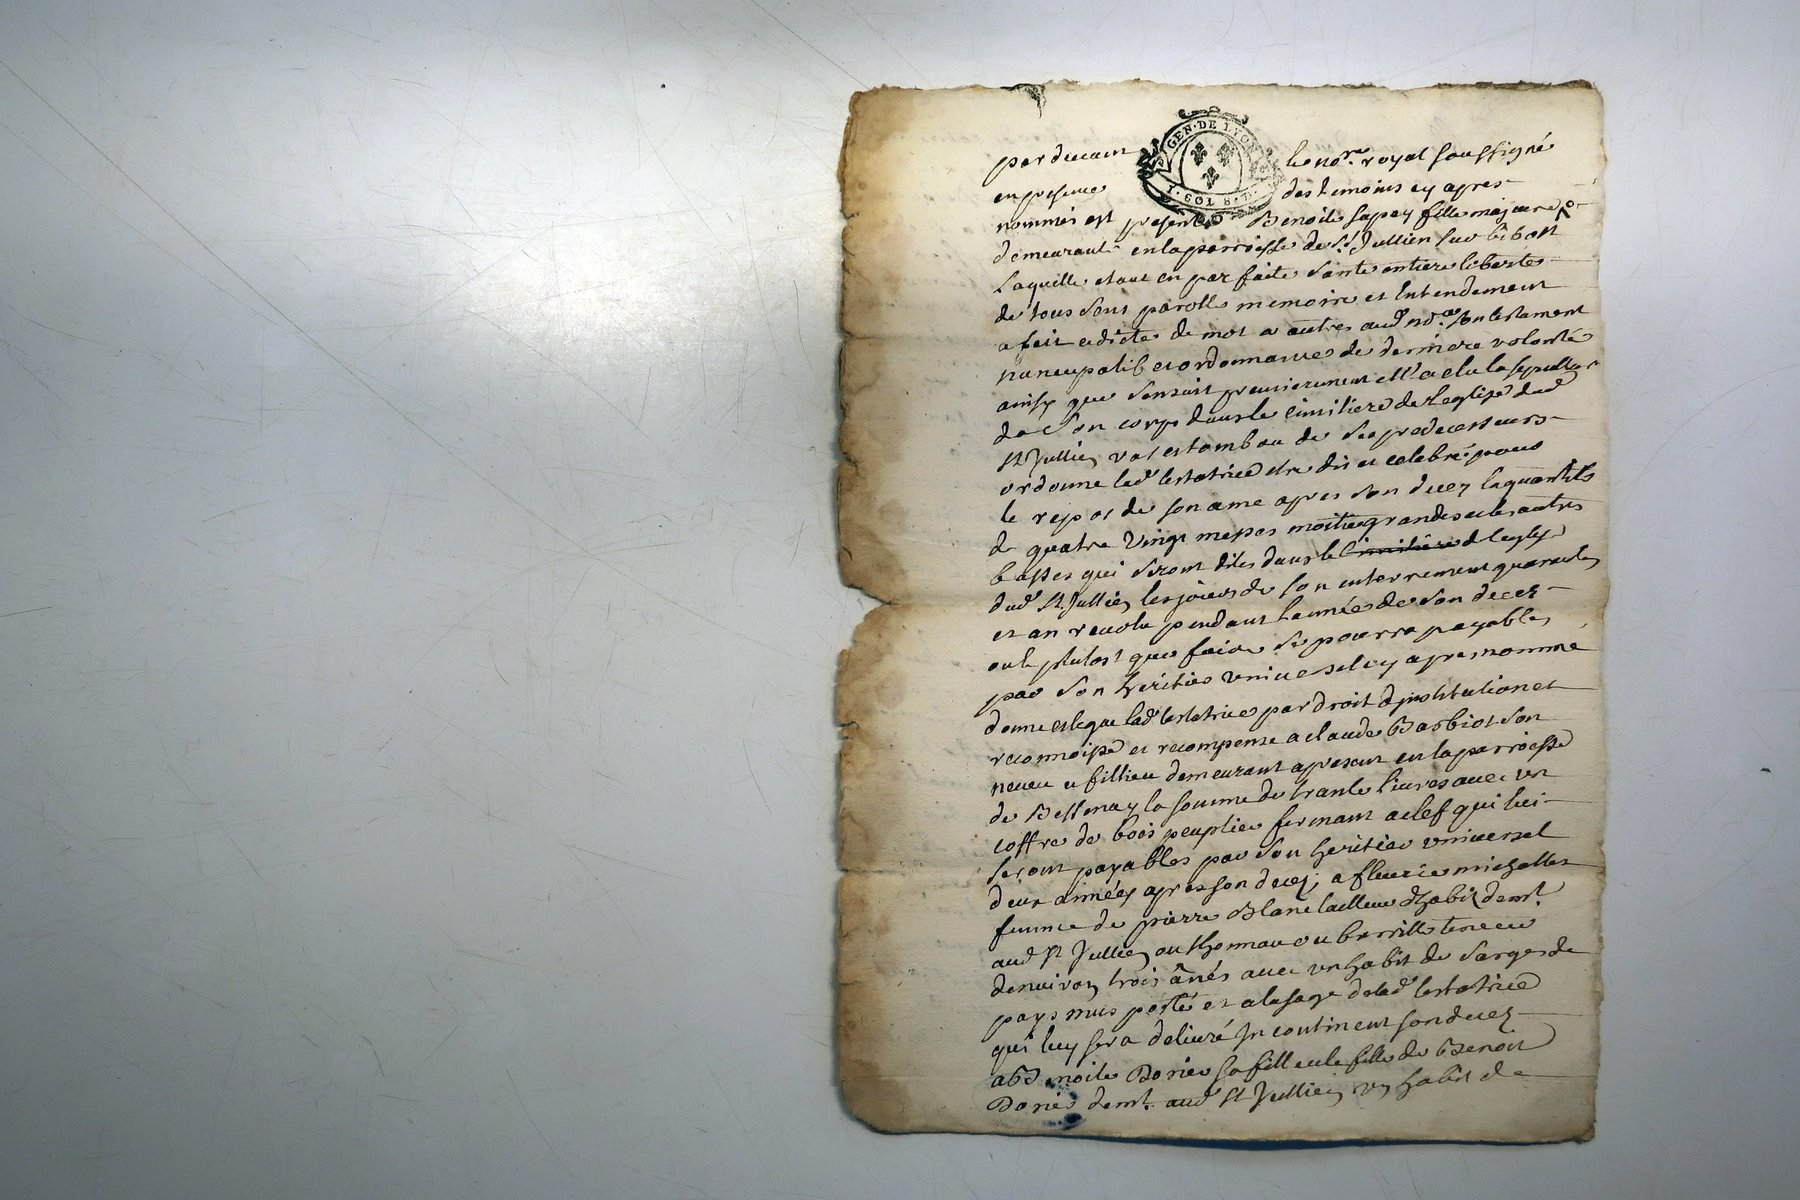 GEN·DE LYON
I·SOL 8·D
par devant le no.re royal soussigné
en presence des temoins cy apres
nommés est presente Benoite sapey fille majeure
demeurante en la parroisse de St Jullien sur bibost
Laquelle etant en parfaite santé entiere libertés
de tous sens parolle memoire et Entendement
a fait et dicté de mot a autres aud no.re son testament
nuncupatif et ordonnance de derniere volonté
ainsy que sensuit premierement ell' a elu la sepulture
de son corps dans le cimitiere de leglise dud
St Jullien vas et tombau de ses predecesseurs
ordonne lad testatrice etre dit et celebré pour
le repos de son ame apres son decez la quantité
de quatre vingt messes moitié grandes et les autres
basses qui seront dites dans le cimitiere d leglise
dud St Jullien les jours de son enterrement quarantes
et an revolu pendant lannée de son decez
ou le plutost que faire se pourra payables
par son heritier universel cy apres nommé
donne et legue lad testatrice par droit d'institution et
reconnoisse et recompense a claude Barbiot son
neveu et fillieu demeurant apresent en la parroisse
de Bessenay la somme de trante livres avec un
coffre de bois peuplier fermant a clef qui lui
seront payables par son heritier universel
deux années apres son decez, a fleurie michallet
femme de pierre Blanc tailleur d'habit dem.t
aud St Jullien un thonneau ou barrille teneur
denviron trois ânés avec un habit de sarges de
pays mis porté et a lusage de lad testatrice
qui luy sera delivré Incontinent son decez
a Benoite Dorier sa filleule fille de Benoit
Dorier dem.t aud St Jullien un habit de